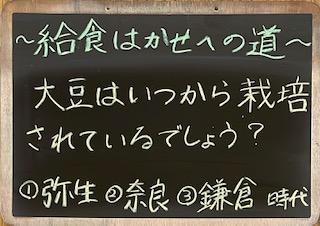 ～給食はかせへの道～
大豆はいつから栽培
されているでしょう？
①弥生②奈良③鎌倉 時代